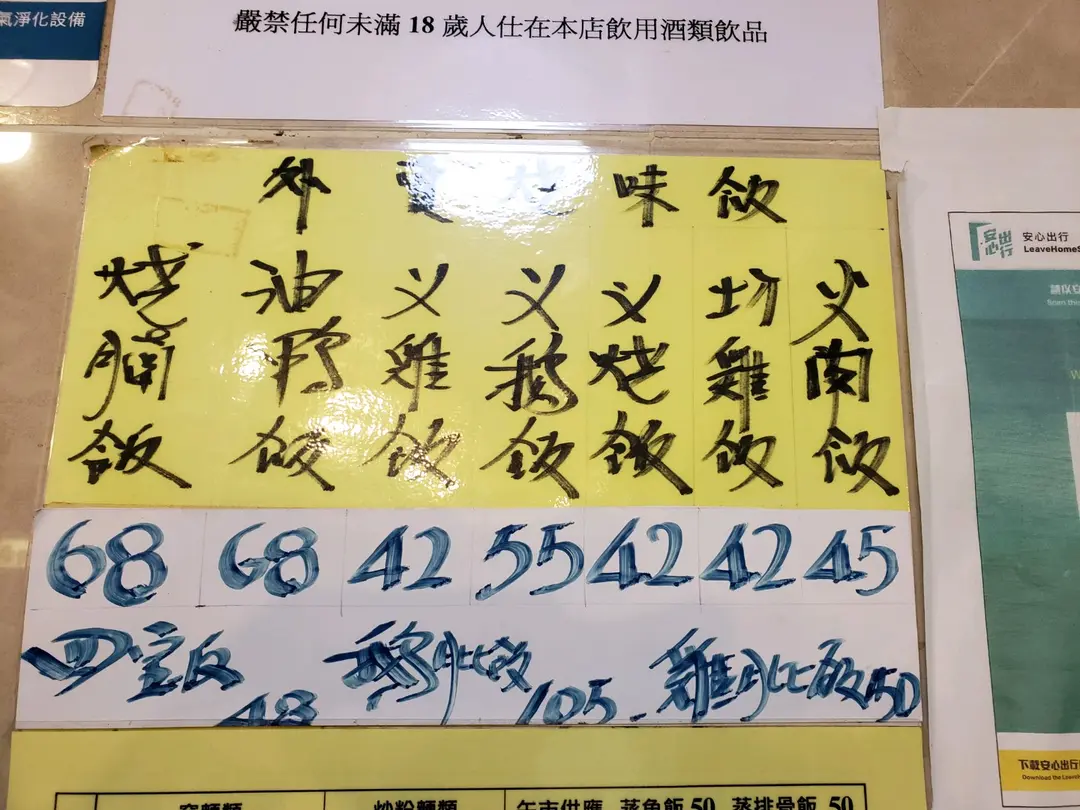 氣淨化設備
嚴禁任何未滿 18 歲人仕在本店飲用酒類飲品
外賣烧味飯
烧腩飯
油鴨飯
义雞飯
义鵝飯
义烧飯
切雞飯
火南飯
68 68 42 55 42 42 45
四宝飯 48 鵝髀飯 105 雞髀飯 50
安心出行
LeaveHomeS
炒粉麵類 午市供應 蒸魚飯 50 蒸排骨飯 50
下載安心出行
Download the Leave